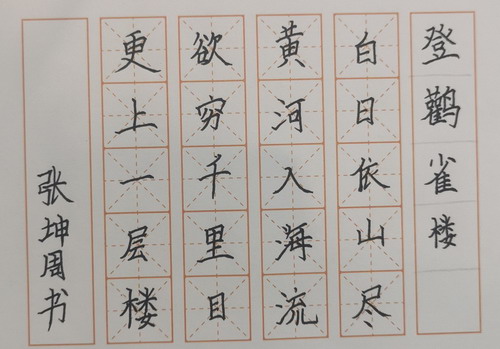 登鹳雀楼
白日依山尽
黄河入海流
欲穷千里目
更上一层楼
张坤周书